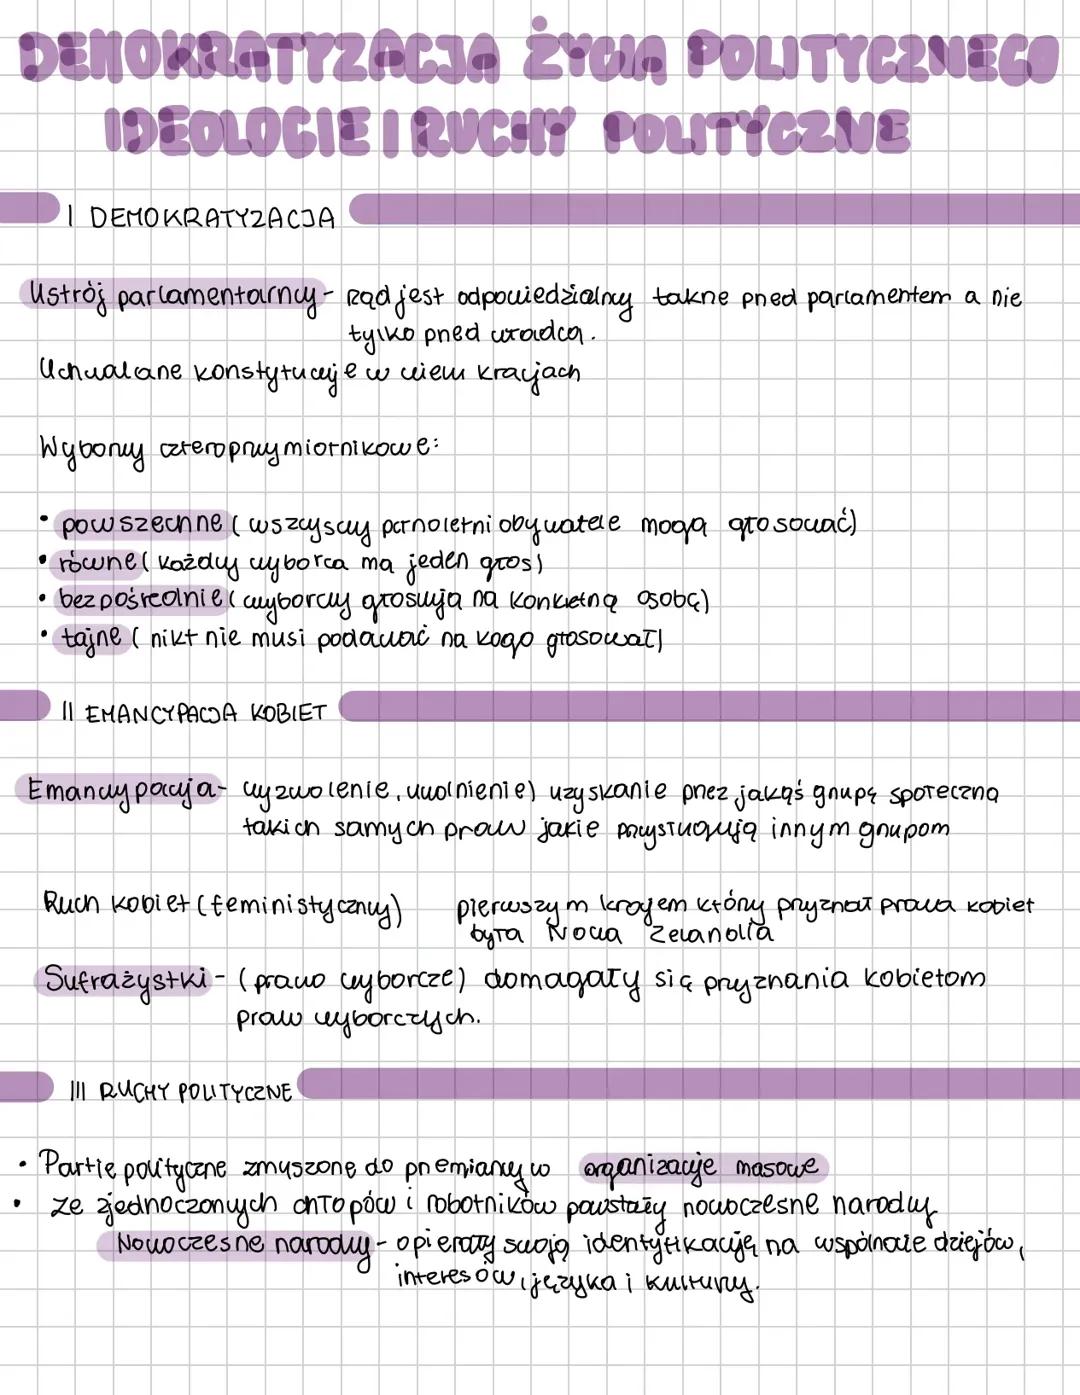 DEMOKRATYZACJA ŻYCIA POLITYCZNEGO
IDEOLOGIE I RUCHY POLITYCZNE
I DEMOKRATYZACJA
Ustrój parlamentarny - rząd jest odpowiedzialny także przed parlamentem a nie
tylko przed władcą.
Uchwalane konstytucyje w wielu krajach
Wybory czteroprzymiotnikowe:
• powszechne (wszyscy pełnoletni obywatele mogą głosować)
• równe (każdy wyborca ma jeden głos)
• bezpośrednie (wyborcy głosują na konkretną osobę)
• tajne (nikt nie musi podawać na kogo głosował)
II EMANCYPACJA KOBIET
Emancypacyja - wyzwolenie, uwolnienie) uzyskanie przez jakąś grupę społeczną
takich samych praw jakie przysługują innym grupom
Ruch kobiet (feministyczny) pierwszym krajem który przyznał prawa kobiet
była Nowa Zelandia
Sufrażystki - (prawo wyborcze) domagały się przyznania kobietom
praw wyborczych.
III RUCHY POLITYCZNE
• Partie polityczne zmuszone do przemiany w organizacje masowe
• ze zjednoczonych chłopów i robotników powstały nowoczesne narody
Nowoczesne narody - opierały swoją identyfikację na wspólnocie dziejów,
interesów, języka i kultury.